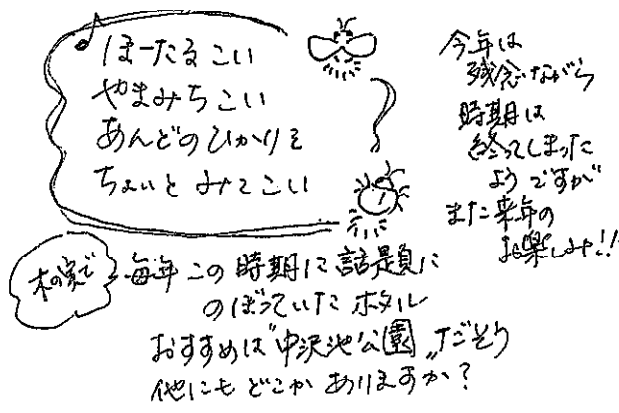 ほーたるこい
やまみちこい
あんどのひかりを
ちょいとみてこい
今年は
残念ながら
時期は
終ってしまった
ようですが
また来年の
お楽しみ!!
木の家で
毎年この時期に話題に
のぼっていたホタル
おすすめは"中沢池公園"だそう
他にもどこかありますか?